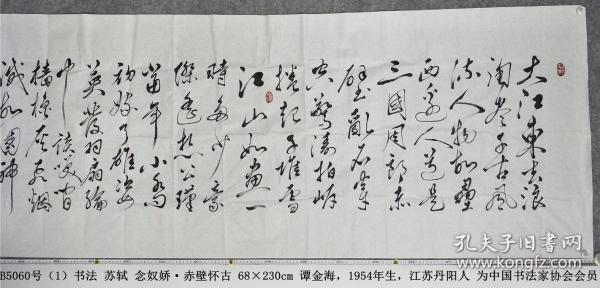 大江東去浪
淘尽千古风
流人物故壘
西邊人道是
三國周郎赤
壁亂石穿
空驚濤拍岸
捲起千堆雪
江山如畫一
時多少豪
傑遙想公瑾
當年小喬
初嫁了雄姿
英發羽扇綸
巾談笑間
檣櫓灰飛烟
滅故國神
孔夫子旧书网
kongfz.com
B5060号（1）书法 苏轼 念奴娇·赤壁怀古 68×230cm 谭金海，1954年生，江苏丹阳人 为中国书法家协会会员